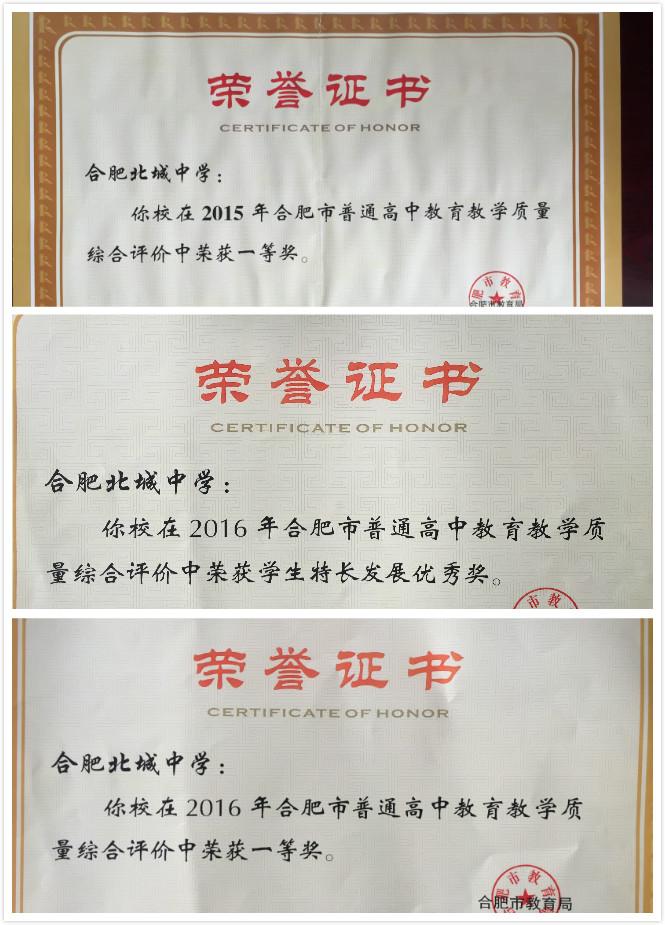 荣誉证书
CERTIFICATE OF HONOR
合肥北城中学：
你校在2015年合肥市普通高中教育教学质量
综合评价中荣获一等奖。
肥市教育
合肥市教育局
荣誉证书
CERTIFICATE OF HONOR
合肥北城中学：
你校在2016年合肥市普通高中教育教学质
量综合评价中荣获学生特长发展优秀奖。
市教
荣誉证书
CERTIFICATE OF HONOR
合肥北城中学：
你校在2016年合肥市普通高中教育教学质
量综合评价中荣获一等奖。
合肥市教育局
合肥市教育局